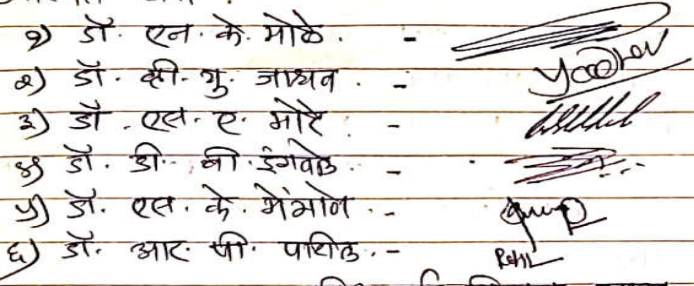 १) डॉ. एन. के. मोळे. -
२) डॉ. व्ही. यु. जाधव. -
३) डॉ. एस. ए. मोरे. -
४) डॉ. डी. बी. इंगवले. -
५) डॉ. एस. के. मेंगाने. -
६) डॉ. आर. पी. पाटील. -